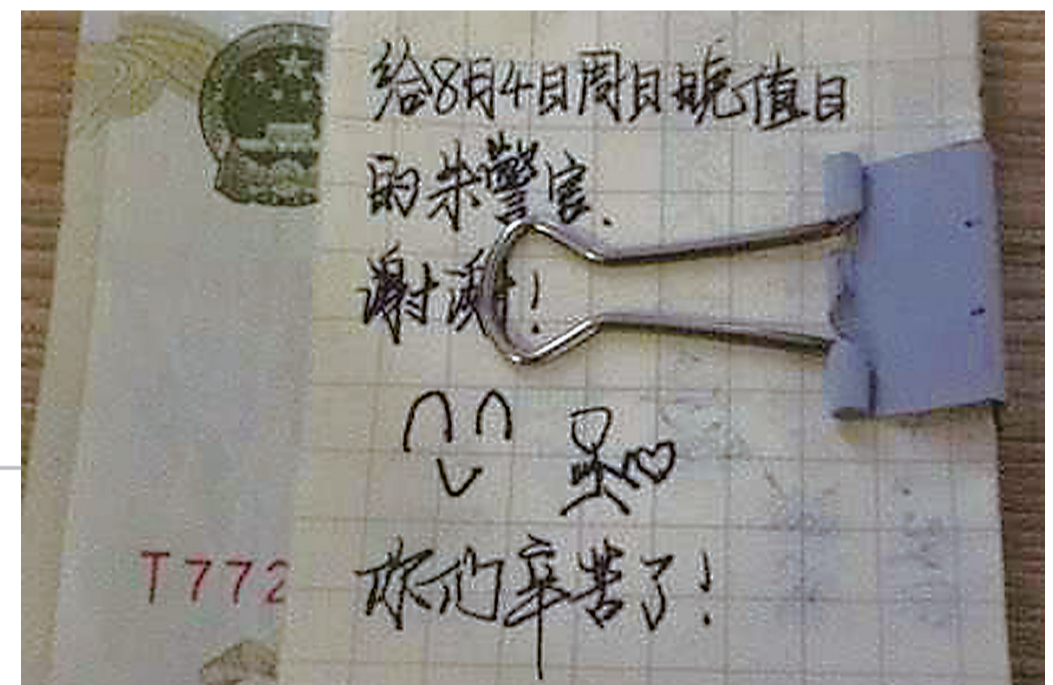 给8月4日周日晚值日
的朱警官、
谢谢!
你们辛苦了!
T772